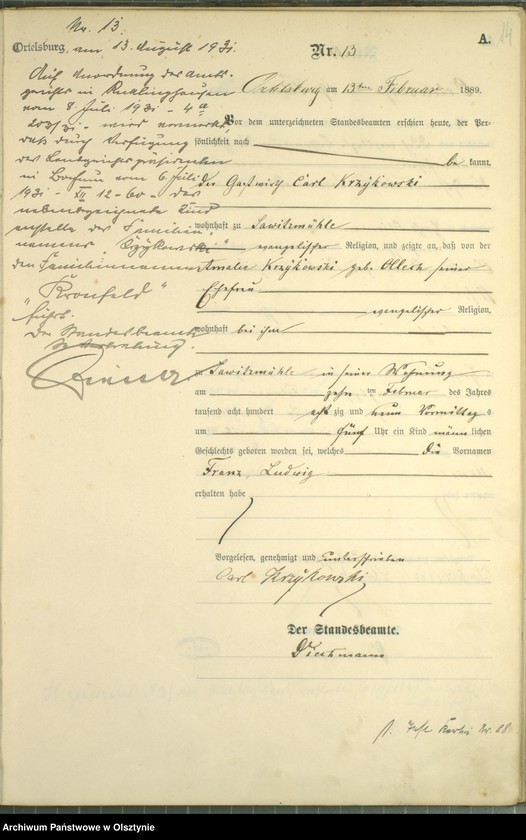 A.
14
Nr. 13
Ortelsburg am 13ten Februar 1889.
Vor dem unterzeichneten Standesbeamten erschien heute, der Per-
sönlichkeit nach
be kannt,
der Gastwirth Carl Krzykowski
wohnhaft zu Sawitzmühle
evangelischer Religion, und zeigte an, daß von der
Amalie Krzykowski geb. Olech seiner
Ehefrau
evangelischer Religion,
wohnhaft bei ihm
zu Sawitzmühle in seiner Wohnung
am zehn ten Februar des Jahres
tausend acht hundert acht zig und neun Vormittag s
um fünf Uhr ein Kind männ lichen
Geschlechts geboren worden sei, welches die Vornamen
Franz, Ludwig
erhalten habe
Vorgelesen, genehmigt und unterschrieben
Carl Krzykowski
Der Standesbeamte.
Nr. 13.
Ortelsburg, am 13. August 1931.
Auf Anordnung des Amts-
gerichts in Recklinghausen
vom 8. Juli 1931 - 4 a
wird vermerkt,
daß durch Verfügung
des Landgerichtspräsidenten
in Bochum vom 6. Juli
1931 - XII 12-60 - das
nebenbezeichnete Kind
anstelle des Familien-
namens
den Familiennamen
"Kronfeld"
führt.
Der Standesbeamte
Archiwum Państwowe w Olsztynie